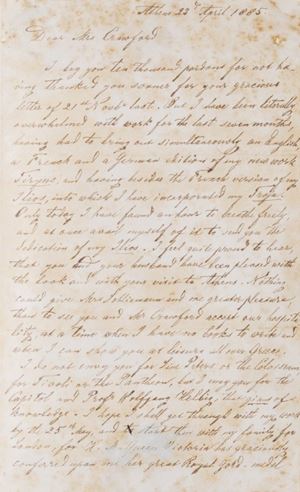 Athens 23d April 1885.
Dear Mrs Crawford
I beg you ten thousand pardons for not ha-
ving thanked you sooner for your gracious
letter of 21st Novbr last. But I have been literally
overwhelmed with work for the last seven months,
having had to bring out simultaneously an English
a French and a German edition of my new work
Tiryns, and having besides the French version of my
Ilios, into which I have incorporated my Troja.
Only today I have found an hour to breathe freely,
and at once avail myself of it to send you the
dedication of my Ilios. I feel quite proud to hear,
that you and your husband have been pleased with
the book and with your visit to Athens. Nothing
could give Mrs Schliemann and me greater pleasure,
than to see you and Mr Crawford accept our hospita-
lity, at a time when I have no books to write and
when I can show you at leisure all over Greece.
I do not envy you for San Pietro or the Colosseum
for Tivoli or the Pantheon, but I envy you for the
Capitol and Profr Wolfgang Helbig, the giant of
knowledge. I hope I shall get through with my work
by the 25th May, and start then with my family for
London, for H. M. Queen Victoria has graciously
conferred upon me her great Royal Gold-medal